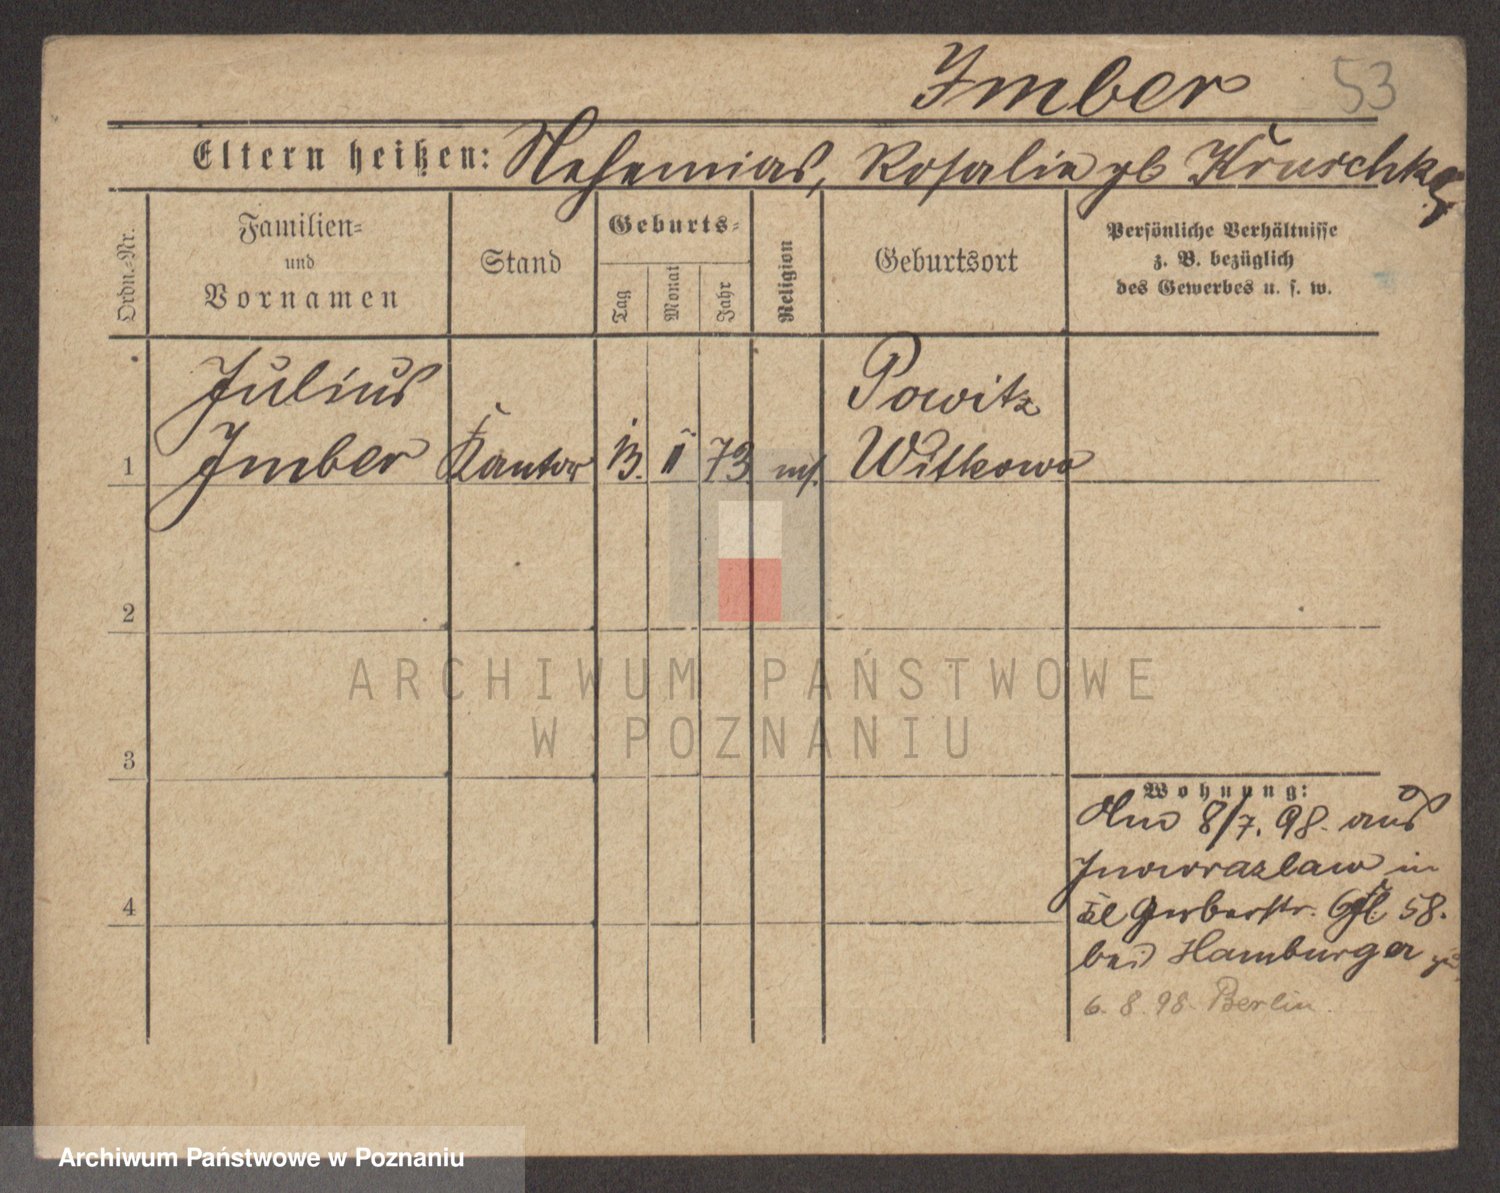 Imber 53
Eltern heißen: Nehemias, Rosalie gb Kruschke
Ordn.-Nr.
Familien-
und
Vornamen
Stand
Geburts-
Tag
Monat
Jahr
Religion
Geburtsort
Persönliche Verhältnisse
z. B. bezüglich
des Gewerbes u. s. w.
Julius
Powitz
1 Imber Kantor 13. II 73 mos. Witkowo
2
3
4
ARCHIWUM PAŃSTWOWE
W POZNANIU
Wohnung:
8/7. 98. aus
Inowrazlaw in
Kl Gerberstr. 58.
bei Hamburger
6. 8. 98. Berlin.
Archiwum Państwowe w Poznaniu